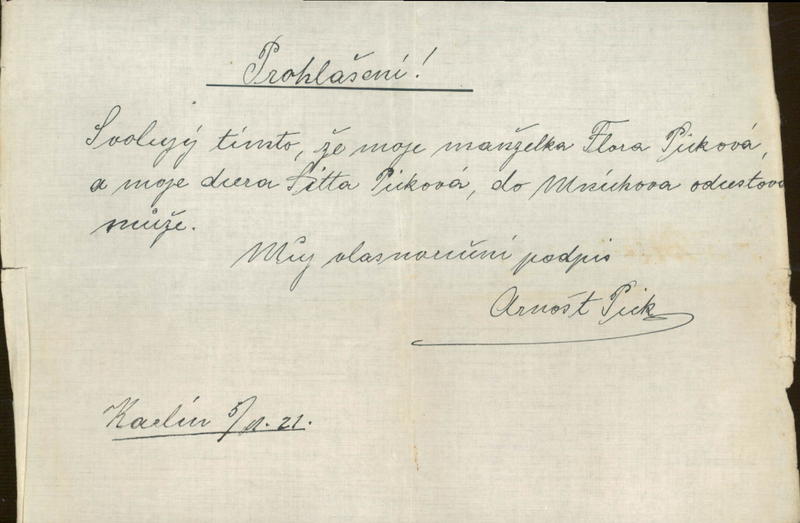 Prohlášení!
Svoluji tímto, že moje manželka Flora Picková,
a moje dcera Litta Picková, do Mnichova odcestova
může.
Můj vlasnoruční podpis
Arnošt Pick
Karlín 5/ 21.